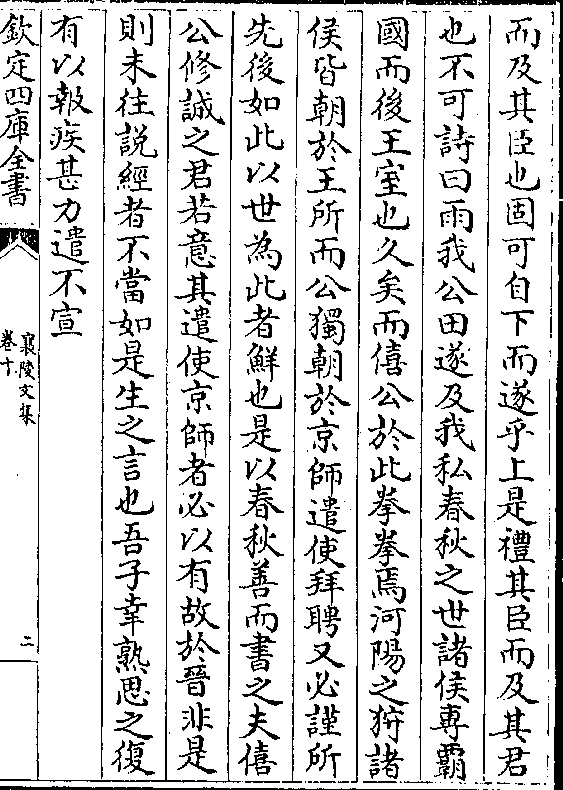 而及其臣也固可自下而遂乎上是禮其臣而及其君
也不可詩曰雨我公田遂及我私春秋之世諸侯専霸
國而後王室也久矣而僖公於此拳拳焉河陽之狩諸
侯皆朝於王所而公獨朝於京師遣使拜聘又必謹所
先後如此以世為此者鮮也是以春秋善而書之夫僖
公修誠之君若意其遣使京師者必以有故於晉非是
則未往說經者不當如是生之言也吾子幸熟思之復
有以報疾甚力遣不宣
欽定四庫全書
襄陵文集
卷十
二